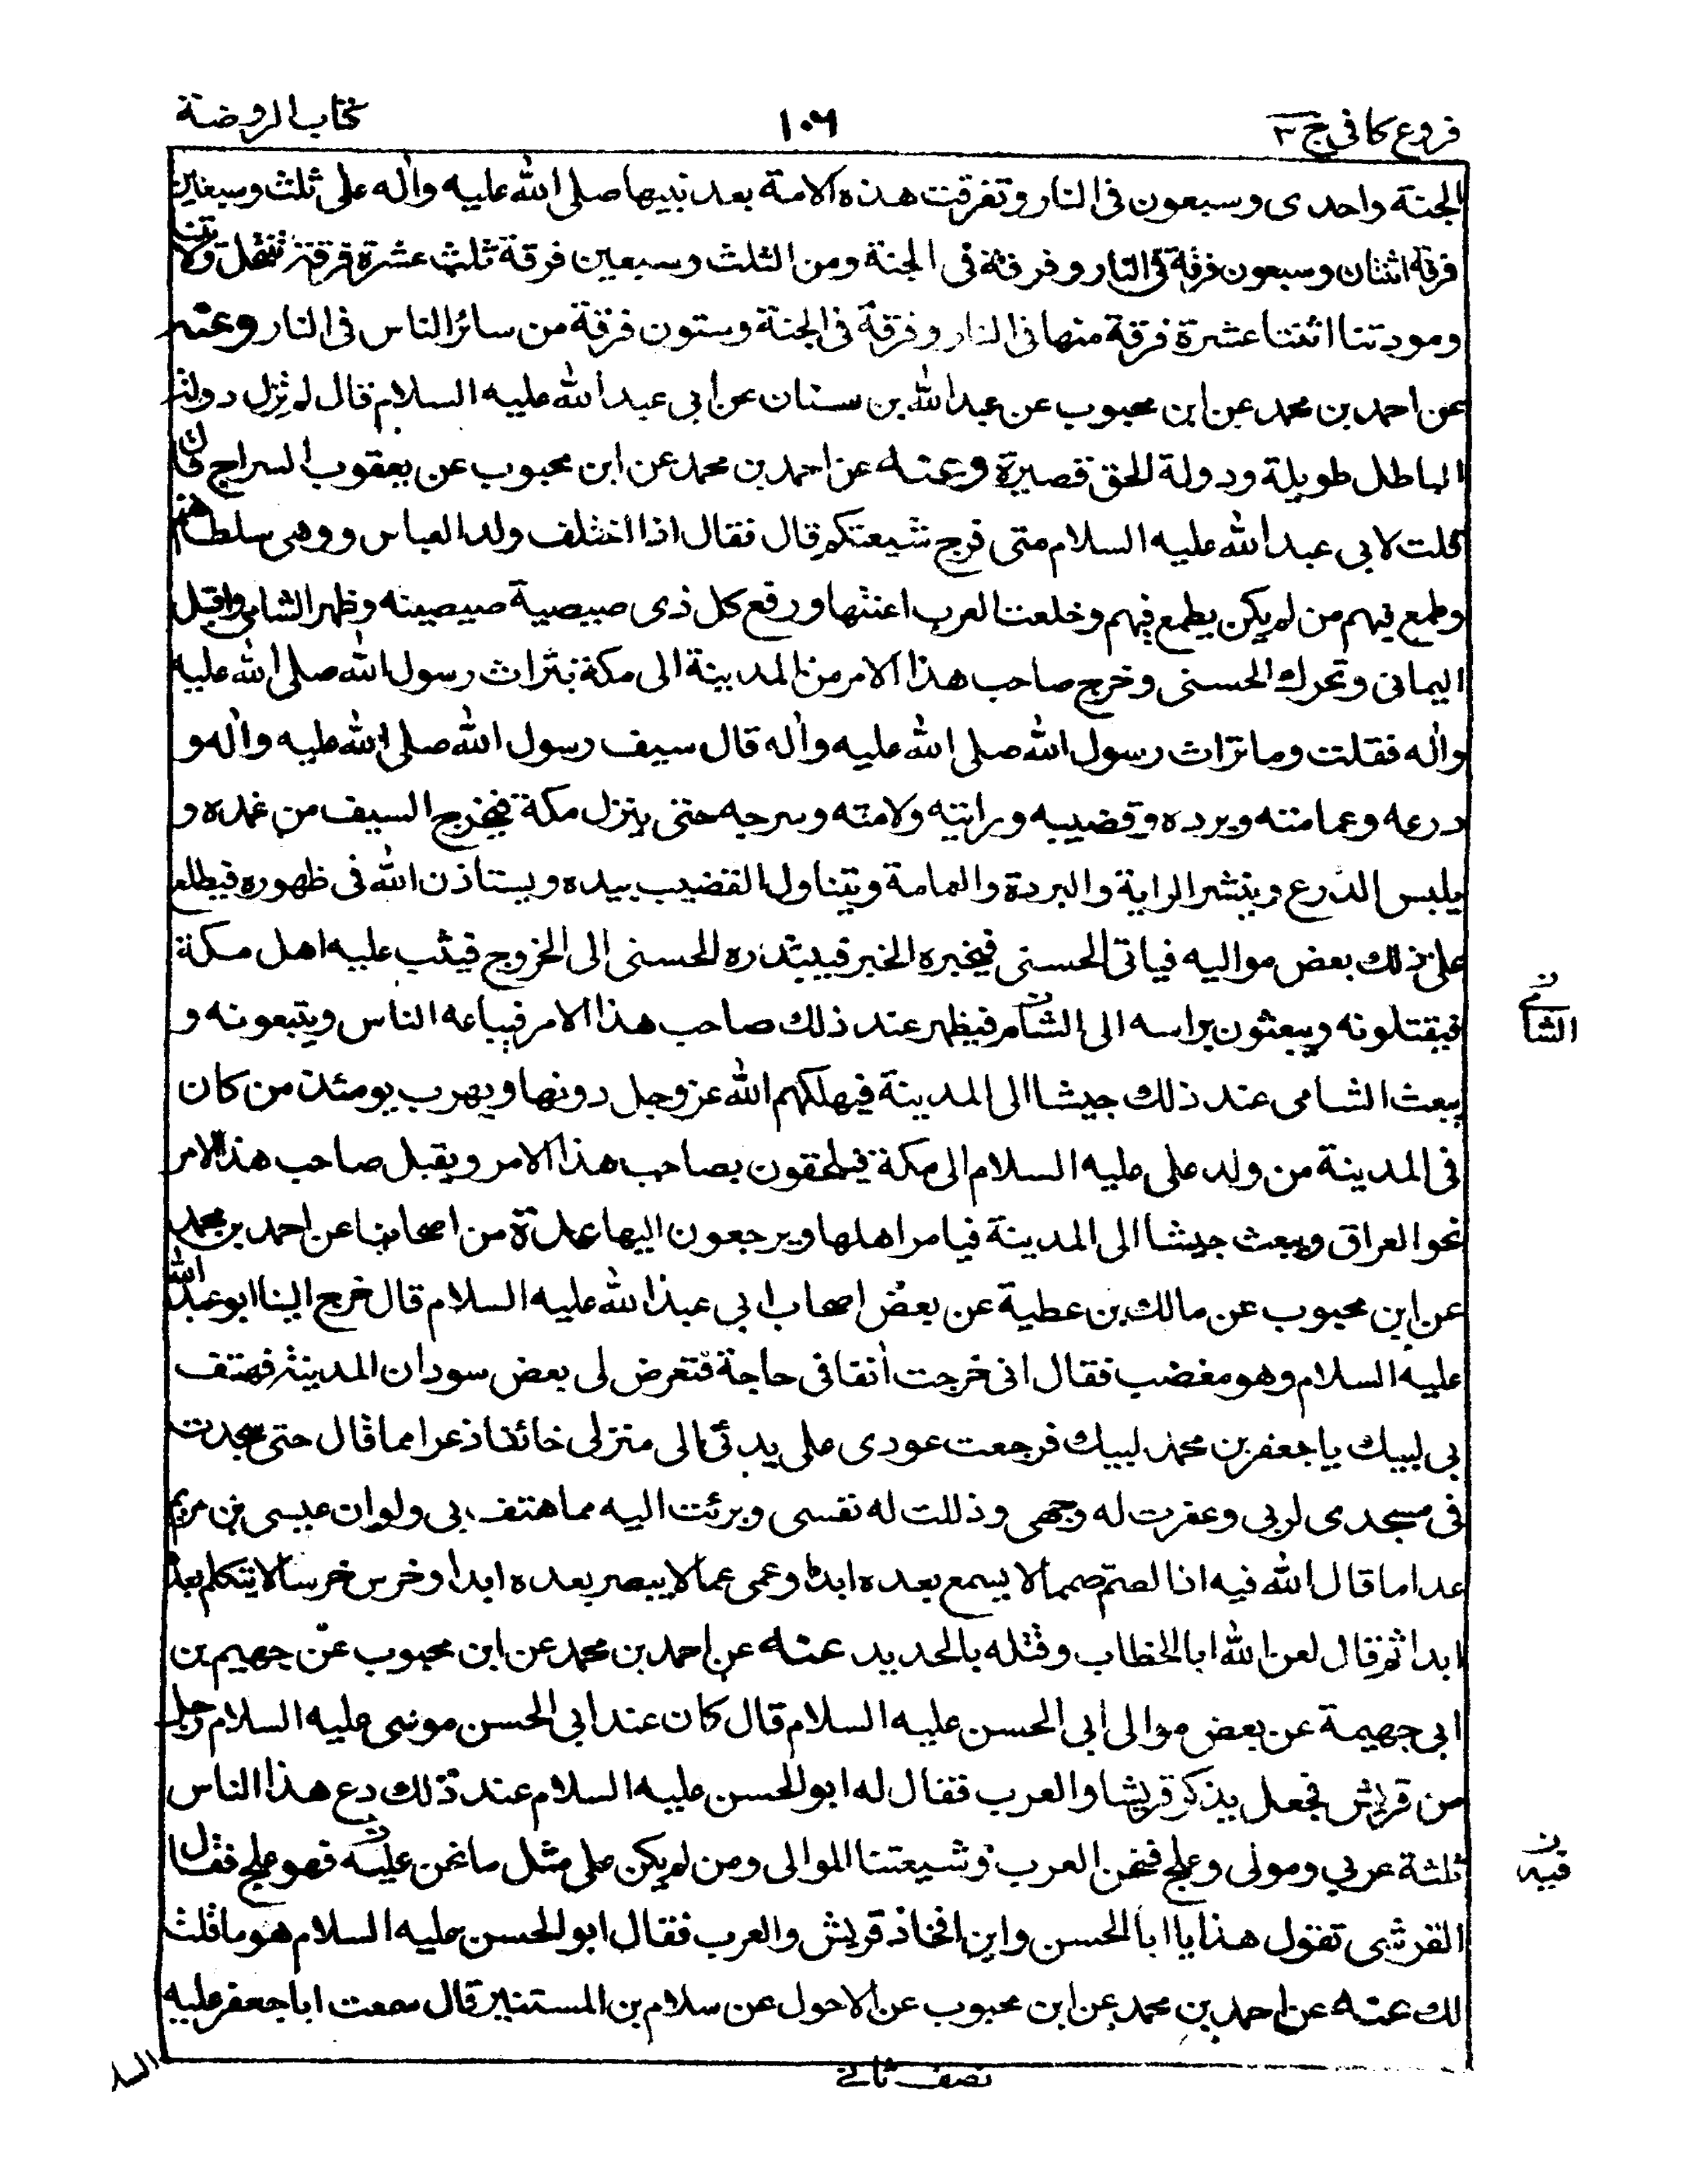 فروع كافى ج ٣
١٠٦
كتاب الروضة
الجنة واحدى وسبعون فى النار وتفرقت هذه الامة بعد نبيها صلى الله عليه واله على ثلث وسبعين
فرقة اثنتان وسبعون فرقة فى النار وفرقة فى الجنة ومن الثلث وسبعين فرقة ثلث عشرة فرقة تنتحل ولايتنا
ومودتنا اثنتنا عشرة فرقة منها فى النار وفرقة فى الجنة وستون فرقة من سائر الناس فى النار وعنه
عن احمد بن محمد عن ابن محبوب عن عبد الله بن سنان عن ابى عبد الله عليه السلام قال لم تزل دولة
الباطل طويلة ودولة الحق قصيرة وعنه عن احمد بن محمد عن ابن محبوب عن يعقوب السراج قال
قلت لابى عبد الله عليه السلام متى فرج شيعتكم قال فقال اذا اختلف ولد العباس ووهى سلطانهم
وطمع فيهم من لم يكن يطمع فيهم وخلعت العرب اعنتها ورفع كل ذى صيصية صيصيته وظهر الشامى واقبل
اليمانى وتحرك الحسنى وخرج صاحب هذا الامر من المدينة الى مكة بتراث رسول الله صلى الله عليه
واله فقلت وما تراث رسول الله صلى الله عليه واله قال سيف رسول الله صلى الله عليه واله و
درعه وعمامته وبرده وقضيبه ورايته ولامته وسرجه حتى ينزل مكة فيخرج السيف من غمده و
يلبس الدرع وينشر الراية والبردة والعمامة ويتناول القضيب بيده ويستاذن الله فى ظهوره فيطلع
على ذلك بعض مواليه فياتى الحسنى فيخبره الخبر فيبتدره الحسنى الى الخروج فيثب عليه اهل مكة
فيقتلونه ويبعثون براسه الى الشام فيظهر عند ذلك صاحب هذا الامر فيباعه الناس ويتبعونه و
ن
الشامى
يبعث الشامى عند ذلك جيشا الى المدينة فيهلكهم الله عز وجل دونها ويهرب يومئذ من كان
فى المدينة من ولد على عليه السلام الى مكة فيلحقون بصاحب هذا الامر ويقبل صاحب هذا الامر
نحو العراق ويبعث جيشا الى المدينة فيامر اهلها ويرجعون اليها عدة من اصحابنا عن احمد بن محمد
عن ابن محبوب عن مالك بن عطية عن بعض اصحاب ابى عبد الله عليه السلام قال خرج الينا ابو عبد الله
عليه السلام وهو مغضب فقال انى خرجت انفا فى حاجة فتعرض لى بعض سودان المدينة فهتف
بى لبيك يا جعفر بن محمد لبيك فرجعت عودى على بدئى الى منزلى خائفا ذعرا مما قال حتى سجدت
فى مسجدى لربى وعفرت له وجهى وذللت له نفسى وبرئت اليه مما هتف بى ولو ان عيسى بن مريم
عدا ما قال الله فيه اذا لصم صمما لا يسمع بعده ابدا وعمى عما لا يبصر بعده ابدا وخرس خرسا لا يتكلم بعده
ابدا ثم قال لعن الله ابا الخطاب وقتله بالحديد عنه عن احمد بن محمد عن ابن محبوب عن جهيم بن
ابى جهيمة عن بعض موالى ابى الحسن عليه السلام قال كان عند ابى الحسن موسى عليه السلام رجل
من قريش فجعل يذكر قريشا والعرب فقال له ابو الحسن عليه السلام عند ذلك دع هذا الناس
ثلثة عربي ومولى وعلج فنحن العرب وشيعتنا الموالى ومن لم يكن على مثل ما نحن عليه فهو علج فقال
ن
فيه
القرشى تقول هذا يا ابا الحسن واين افخاذ قريش والعرب فقال ابو الحسن عليه السلام هو ما قلت
لك عنه عن احمد بن محمد عن ابن محبوب عن الاحول عن سلام بن المستنير قال سمعت ابا جعفر عليه
نصف ثانى
السلا